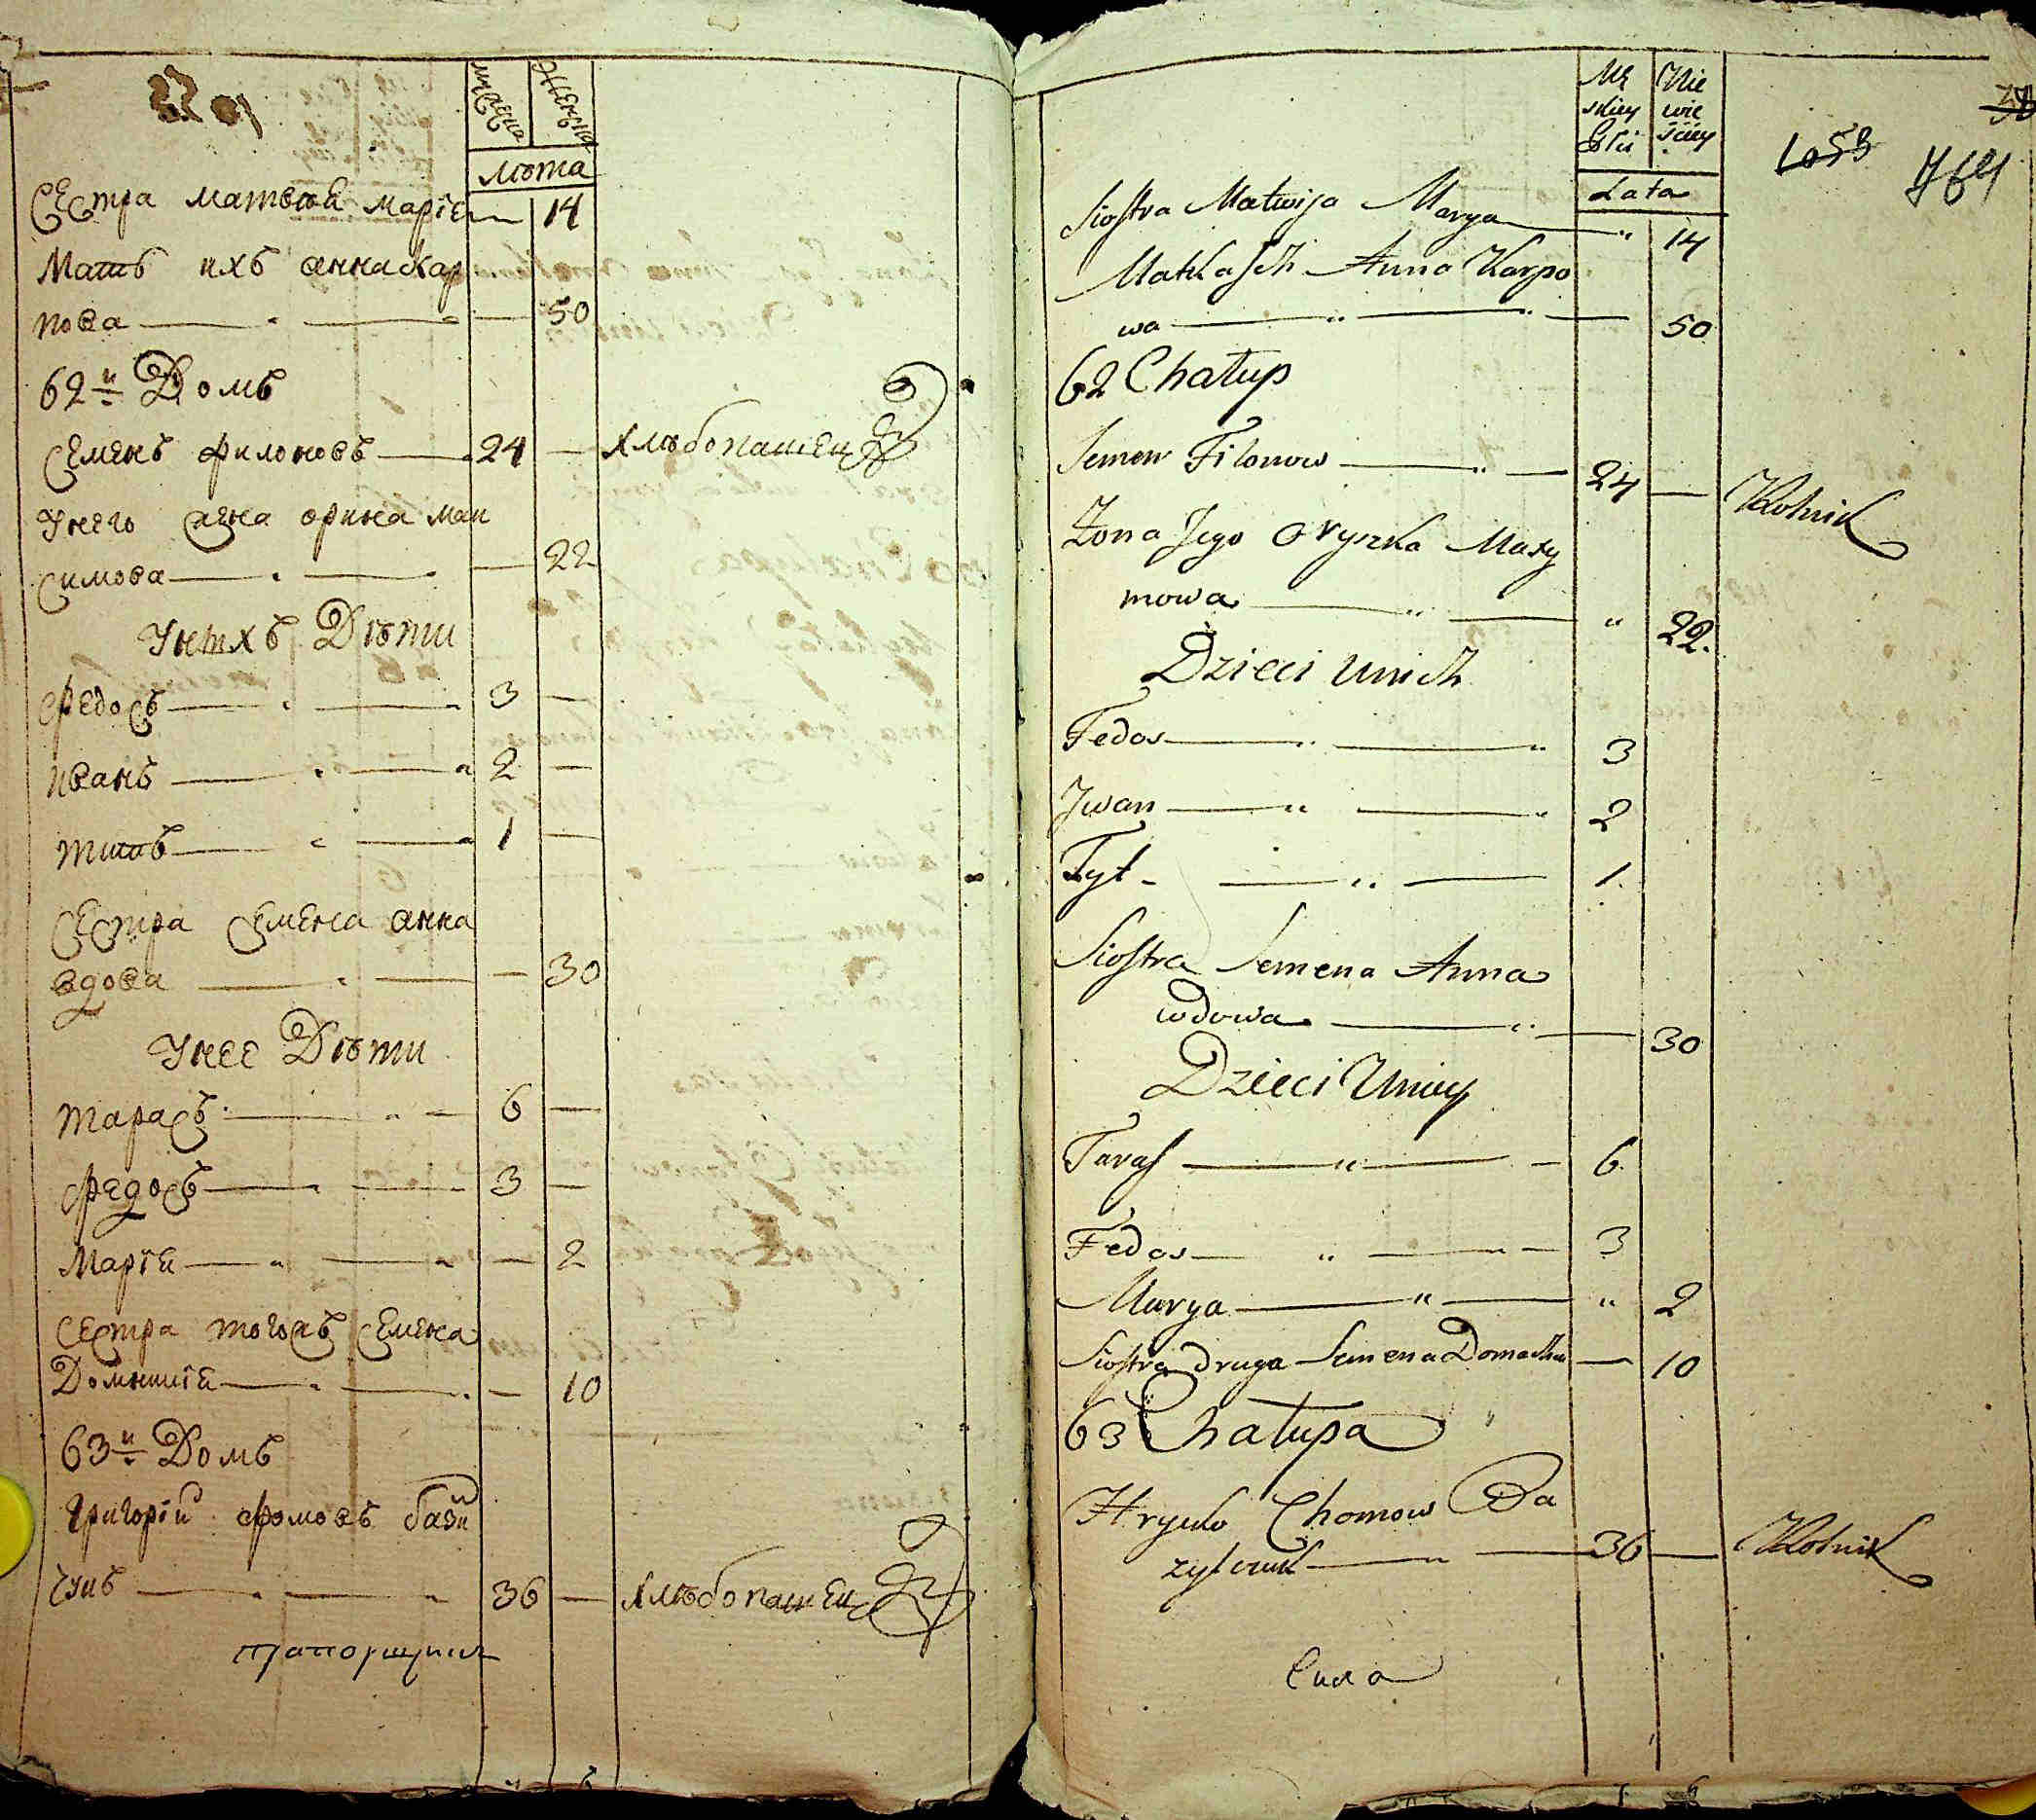 мужеска
женска
лѣта
Сестра матвѣя марїя 14
Мать ихъ анна кар
пова 50
62й Домъ
Семенъ филоновъ 24 хлѣбопашецъ
У него жена орина мак
симова 22
У нихъ Дѣти
федосъ 3
иванъ 2
титъ 1
Сестра Семена анна
вдова 30
У нее Дѣти
тарасъ 6
федосъ 3
Марїя 2
Сестра тогожъ Семена
Домникїя 10
63й Домъ
Григорїй фомовъ бази
лукъ 36 хлѣбопашецъ
прапорщикъ
Mę
skiey
Płci
Nie
wie
ściey
Lata
1053
764
Siostra Matwija Marya 14
Matka Ich Anna Karpo
wa 50
62 Chałup
Semen Filonow 24 Rolnik
Żona Jego Orynka Maxy
mowa 22.
Dzieci u nich
Fedos 3
Jwan 2
Tyt 1.
Siostra Semena Anna
wdowa 30
Dzieci U niey
Taras 6
Fedos 3
Marya 2
Siostra druga Semena Domacha 10
63 Chałupa
Hrycko Chomow Ba
zylczuk 36 Rolnik
Сила